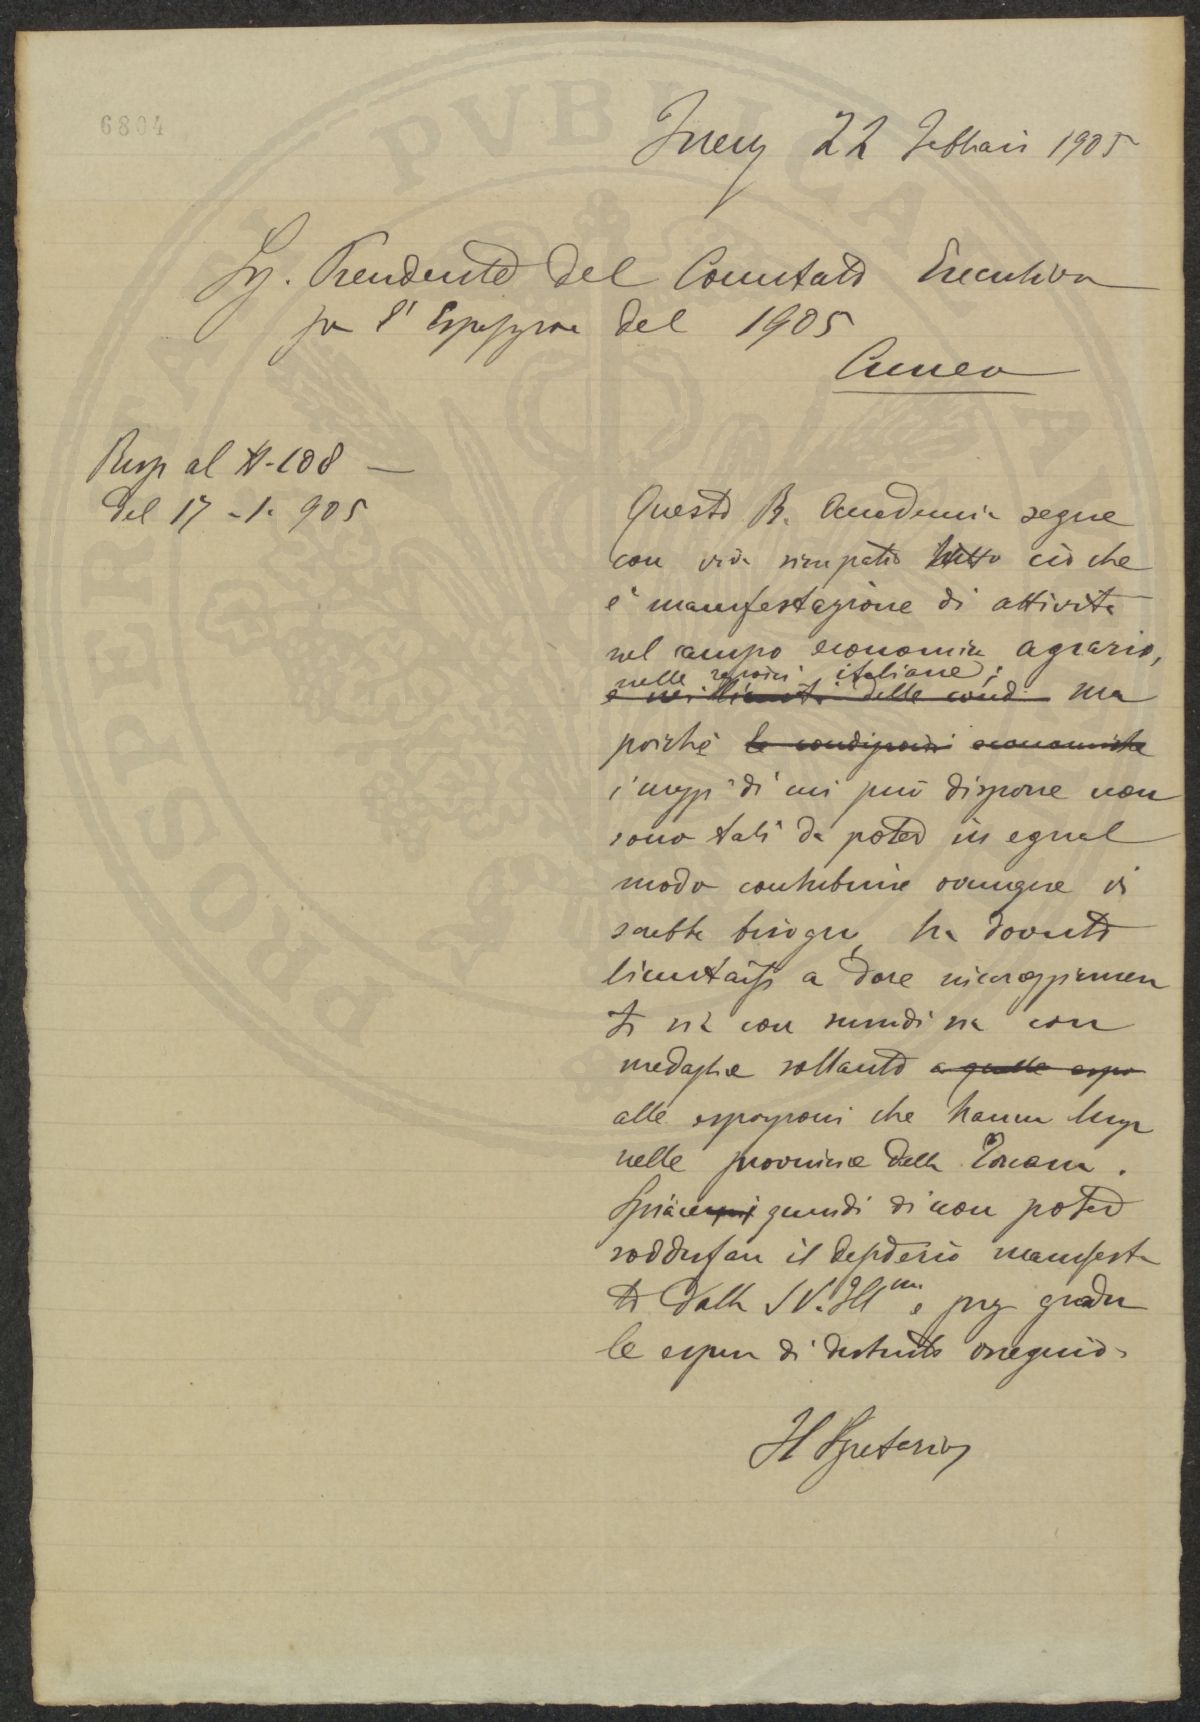 6804
22 Febbraio 1905
Sg. Presidente del Comitato Esecutivo
per l'Esposizione del 1905
Cuneo
Risp al N. 108 —
del 17 - 1. 905
Questa R. Accademia segue
con viva simpatia tutto ciò che
è manifestazione di attività
nel campo economico agrario,
nelle regioni italiane;
e nei limiti delle cond ma
poichè le condizioni economiche
i mezzi di cui può disporre non
sono tali da poter in egual
modo contribuire ovunque vi
sarebbe bisogno, ha dovuto
limitarsi a dare incoraggiamen
ti sia con sussidi sia con
medaglie soltanto a quelle espo
alle esposizioni che hanno luogo
nelle provincie della Toscana.
Spiacemi quindi di non poter
soddisfare il desiderio manifesta
to dalla S.V. Ill.ma e prego gradire
le espres di distinto ossequio.
Il Segretario
PVBLICAE
PROSPERITATI